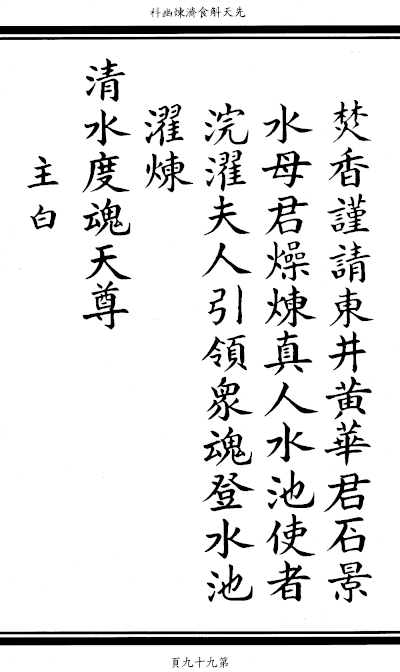 先天斛食濟煉幽科
焚香謹請東井黃華君石景
水母君燥煉真人水池使者
浣濯夫人引領眾魂登水池
濯煉
清水度魂天尊
主白
第九十九頁